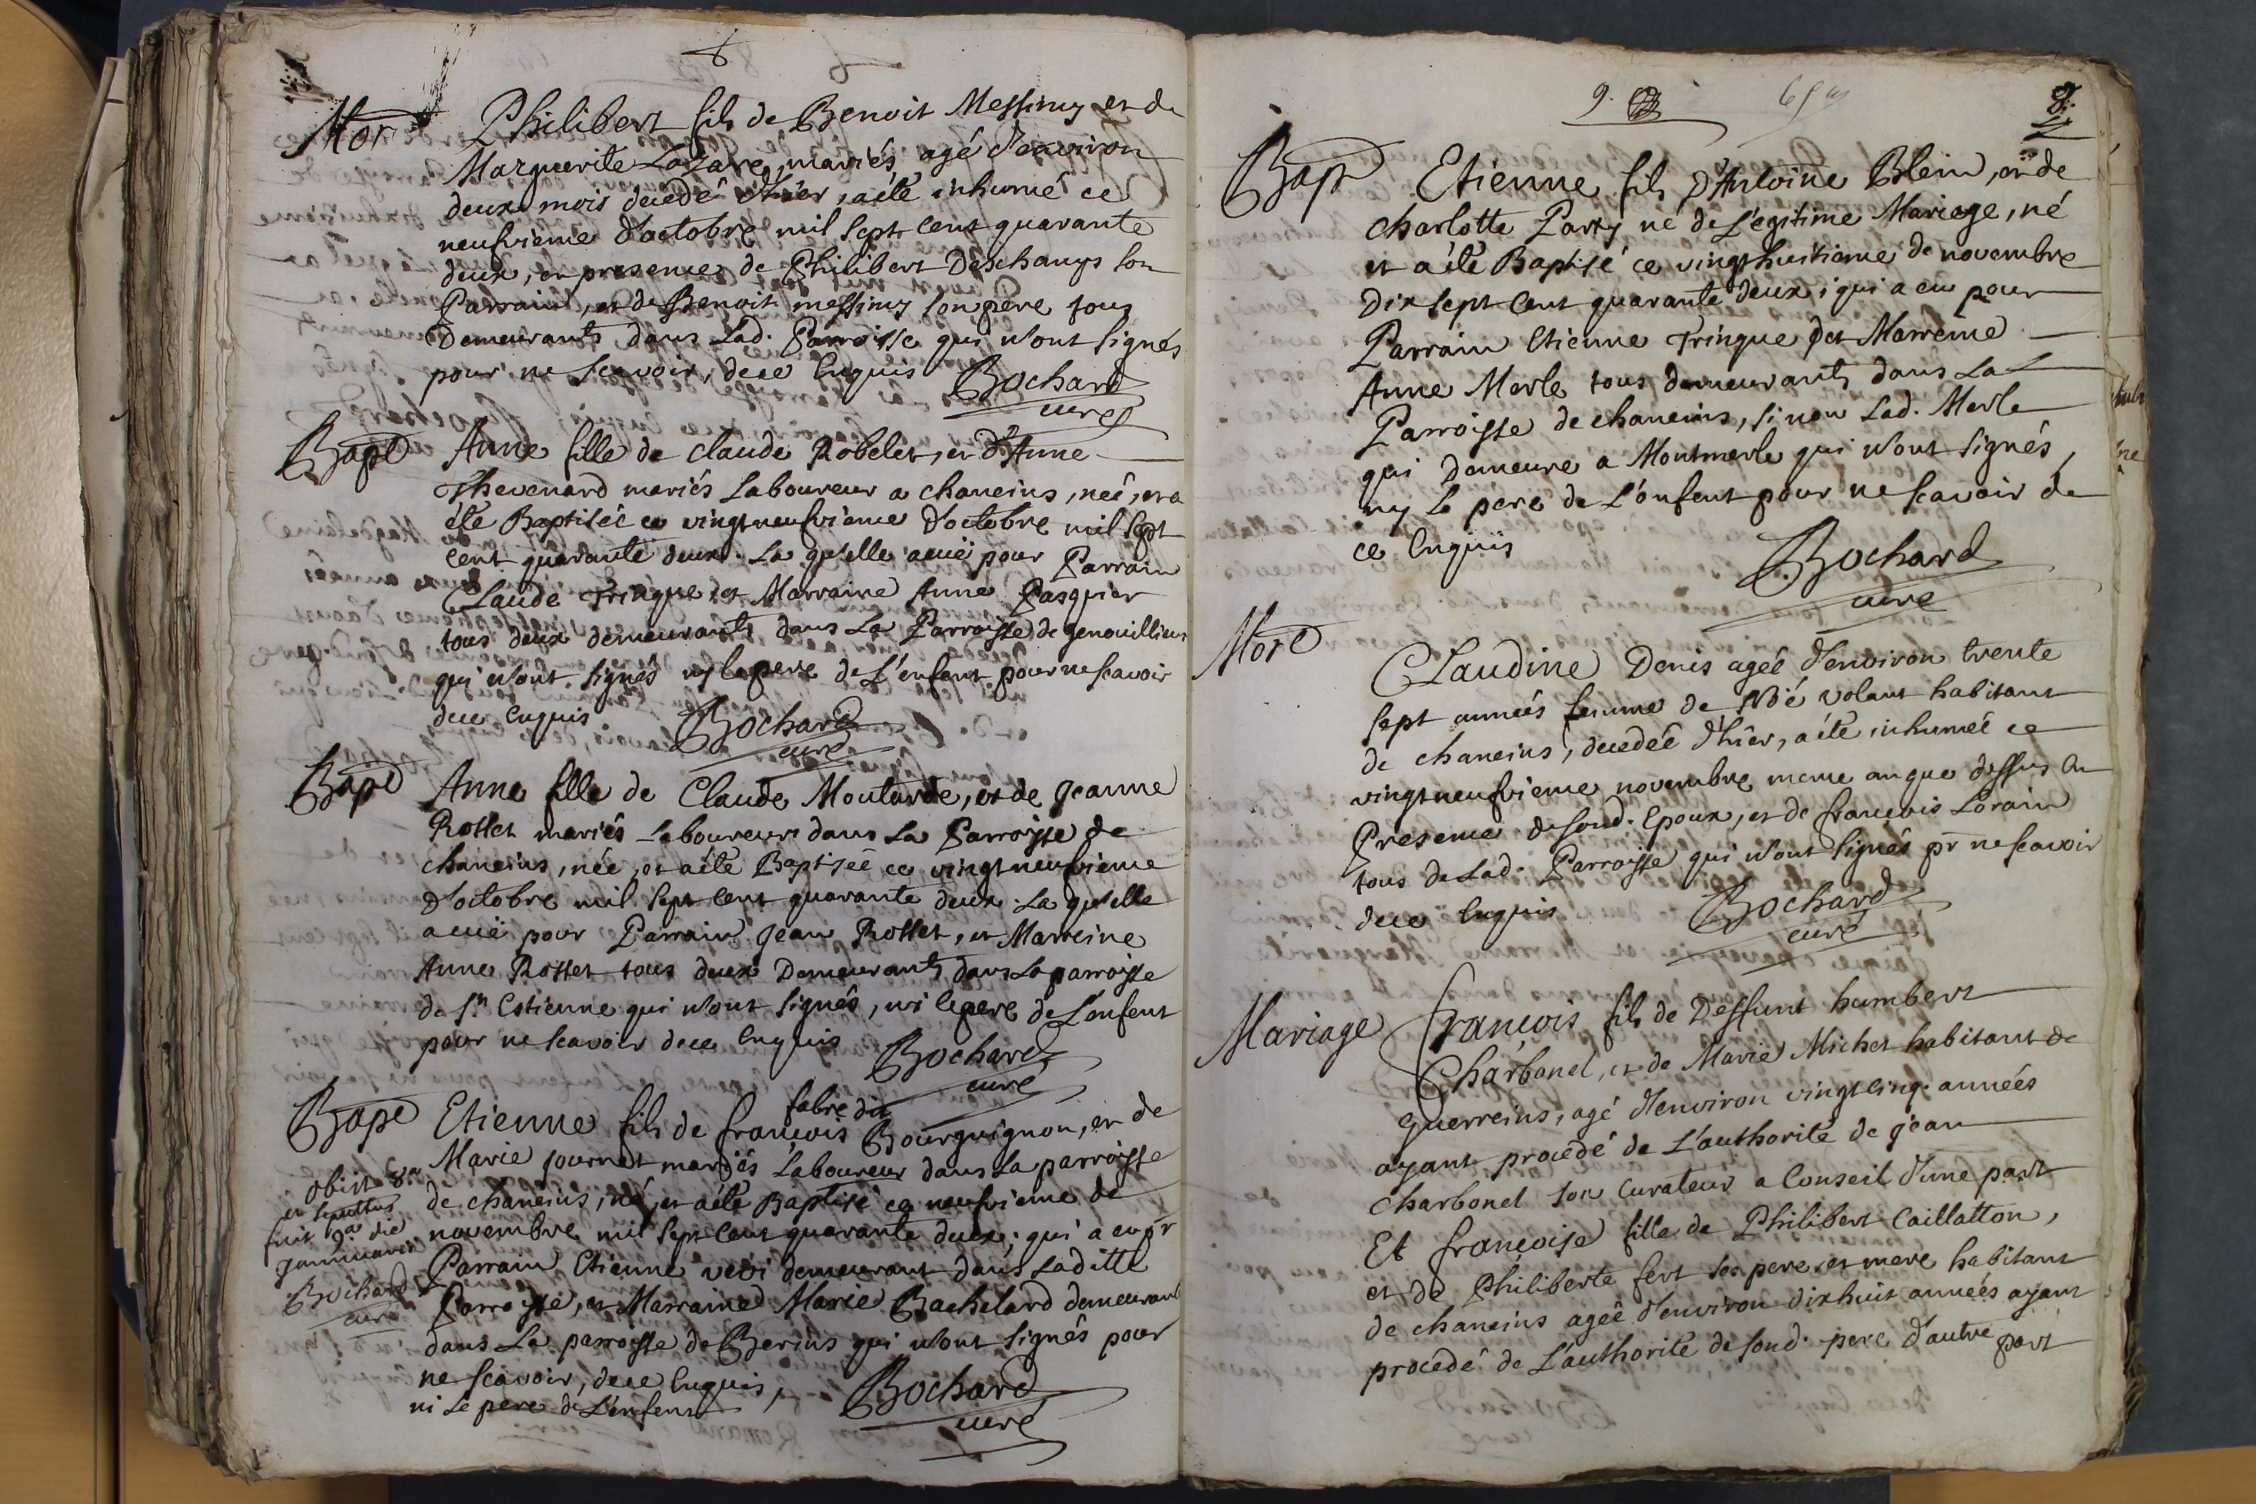 8
Mort
Philibert fils de Benoit Messimy et de
Marguerite Lazare, mariés, agé d'environ
deux mois decedé d'hier, a été inhumé ce
neufvieme d'octobre mil sept cent quarante
deux, en presence de Philibert Deschamps son
Parrain, et de Benoit messimy son pere tous
Demeurants dans Lad. Parroisse qui n'ont signés
pour ne scavoir, dece Enquis
Bochard
curé
Bapt
Anne fille de Claude Robelet, et d'Anne
Thevenard mariés Laboureur a chaneins, neé, et a
été Baptiséé ce vingtneufvieme d'octobre mil sept
cent quarante deux. La qu'elle a eüe pour Parrain
Claude Tringue et Marraine Anne Pasquier
tous deux demeurants dans La Parroisse de genouillieux
qui n'ont signés ny le pere de L'enfent pour ne scavoir
dece Enquis
Bochard
curé
Bapt
Anne fille de Claude Moutarde, et de jeanne
Rollet mariés Laboureurs dans La Parroisse de
chaneins, née, et a été Baptiséé ce vingtneufvieme
d'octobre mil sept cent quarante deux. La qu'elle
a eüe pour Parrain jean Rollet, et Marreine
Anne Rollet tous deux Demeurants dans La parroisse
de St. Estienne qui n'ont signés, ni le pere de L'enfent
pour ne scavoir dece Enquis
Bochard
curé
Bapt
fabre dit
Etienne fils de françois Bourguignon, et de
Marie journet mariés Laboureur dans La parroisse
de chaneins, né, et a été Baptisé ce neufvieme de
novembre mil sept cent quarante deux; qui a eu pr
Parrain Etienne demeurant dans Laditte
Parroisse, et Marraine Marie Bachelard demeurant
dans La parroisse de Berins qui n'ont signés pour
ne scavoir, dece Enquis,
ni Le pere de L'enfent
Bochard
curé
obiit 8a
et sepultus
fuit 9a die
januarii
Bochard
curé
9.
8.
Bapt
Etienne fils d'Antoine Blein, et de
Charlotte Party né de Légitime Mariage, né
et a été Baptisé ce vingthuitieme de novembre
Dix sept cent quarante deux; qui a eu pour
Parrain Etienne Tringue et Marreine
Anne Merle tous demeurants dans La
Parroisse de chaneins, sinon Lad. Merle
qui demeure a Montmerle qui n'ont signés,
ny Le pere de L'enfent pour ne scavoir de
ce Enquis
Bochard
curé
Mort
Claudine Denis agéé d'environ trente
sept années femme de volant habitant
de chaneins, decedéé d'hier, a été inhuméé ce
vingtneufvieme novembre meme an que dessus En
Presence de sond. Epoux, et de françois Lorain
tous de Lad. Parroisse qui n'ont signés pr ne scavoir
dece Enquis
Bochard
curé
Mariage
françois fils de Deffunt humbert
Charbonel, et de Marie Michet habitant de
Guerreins, agé d'environ vingt cinq années
ayant procedé de L'authorité de jean
Charbonel son Curateur a Conseil d'une part
Et françoise fille de Philibert Caillatton,
et de Philiberte fert ses pere et mere habitant
de chaneins agéé d'environ dixhuit années ayant
procedé de L'authorité de sond. pere d'autre part